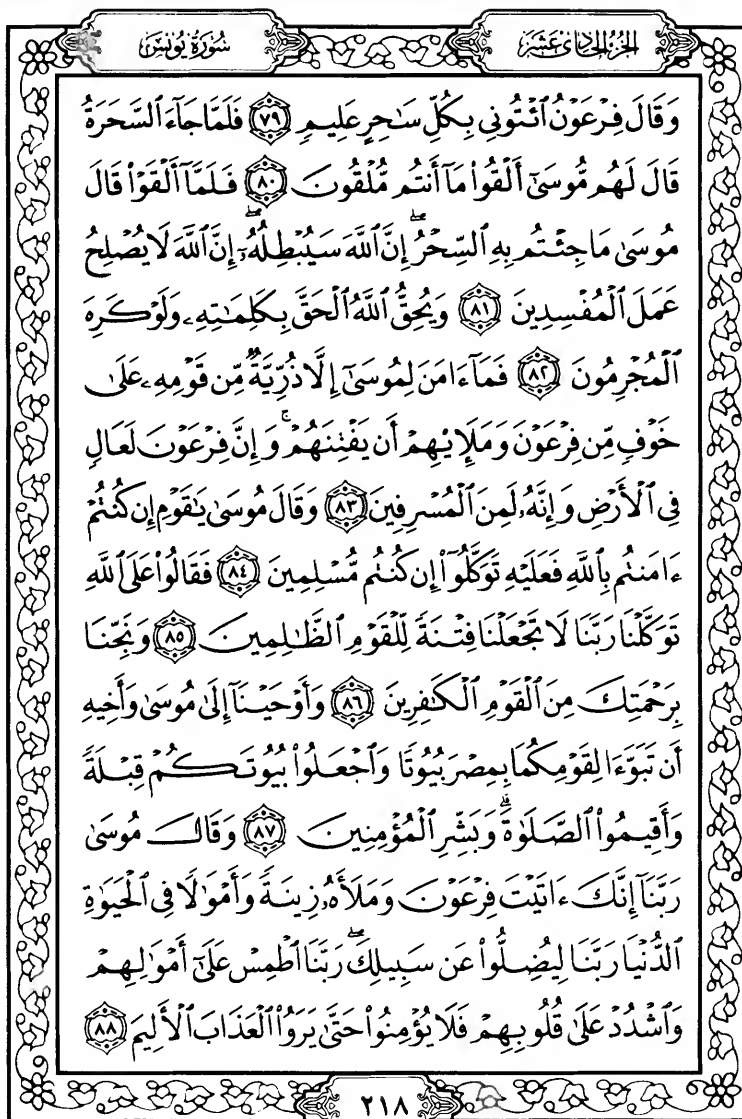 الجزء الحادي عشر
سورة يونس
وَقَالَ فِرْعَوْنُ ٱئْتُونِى بِكُلِّ سَـٰحِرٍ عَلِيمٍ ﴿٧٩﴾ فَلَمَّا جَآءَ ٱلسَّحَرَةُ
قَالَ لَهُم مُّوسَىٰٓ أَلْقُوا۟ مَآ أَنتُم مُّلْقُونَ ﴿٨٠﴾ فَلَمَّآ أَلْقَوْا۟ قَالَ
مُوسَىٰ مَا جِئْتُم بِهِ ٱلسِّحْرُ ۖ إِنَّ ٱللَّهَ سَيُبْطِلُهُۥٓ ۖ إِنَّ ٱللَّهَ لَا يُصْلِحُ
عَمَلَ ٱلْمُفْسِدِينَ ﴿٨١﴾ وَيُحِقُّ ٱللَّهُ ٱلْحَقَّ بِكَلِمَـٰتِهِۦ وَلَوْ كَرِهَ
ٱلْمُجْرِمُونَ ﴿٨٢﴾ فَمَآ ءَامَنَ لِمُوسَىٰٓ إِلَّا ذُرِّيَّةٌ مِّن قَوْمِهِۦ عَلَىٰ
خَوْفٍ مِّن فِرْعَوْنَ وَمَلَإِي۟هِمْ أَن يَفْتِنَهُمْ ۚ وَإِنَّ فِرْعَوْنَ لَعَالٍ
فِى ٱلْأَرْضِ وَإِنَّهُۥ لَمِنَ ٱلْمُسْرِفِينَ ﴿٨٣﴾ وَقَالَ مُوسَىٰ يَـٰقَوْمِ إِن كُنتُمْ
ءَامَنتُم بِٱللَّهِ فَعَلَيْهِ تَوَكَّلُوٓا۟ إِن كُنتُم مُّسْلِمِينَ ﴿٨٤﴾ فَقَالُوا۟ عَلَى ٱللَّهِ
تَوَكَّلْنَا رَبَّنَا لَا تَجْعَلْنَا فِتْنَةً لِّلْقَوْمِ ٱلظَّـٰلِمِينَ ﴿٨٥﴾ وَنَجِّنَا
بِرَحْمَتِكَ مِنَ ٱلْقَوْمِ ٱلْكَـٰفِرِينَ ﴿٨٦﴾ وَأَوْحَيْنَآ إِلَىٰ مُوسَىٰ وَأَخِيهِ
أَن تَبَوَّءَا لِقَوْمِكُمَا بِمِصْرَ بُيُوتًا وَٱجْعَلُوا۟ بُيُوتَكُمْ قِبْلَةً
وَأَقِيمُوا۟ ٱلصَّلَوٰةَ ۗ وَبَشِّرِ ٱلْمُؤْمِنِينَ ﴿٨٧﴾ وَقَالَ مُوسَىٰ
رَبَّنَآ إِنَّكَ ءَاتَيْتَ فِرْعَوْنَ وَمَلَأَهُۥ زِينَةً وَأَمْوَٰلًا فِى ٱلْحَيَوٰةِ
ٱلدُّنْيَا رَبَّنَا لِيُضِلُّوا۟ عَن سَبِيلِكَ ۖ رَبَّنَا ٱطْمِسْ عَلَىٰٓ أَمْوَٰلِهِمْ
وَٱشْدُدْ عَلَىٰ قُلُوبِهِمْ فَلَا يُؤْمِنُوا۟ حَتَّىٰ يَرَوُا۟ ٱلْعَذَابَ ٱلْأَلِيمَ ﴿٨٨﴾
٢١٨